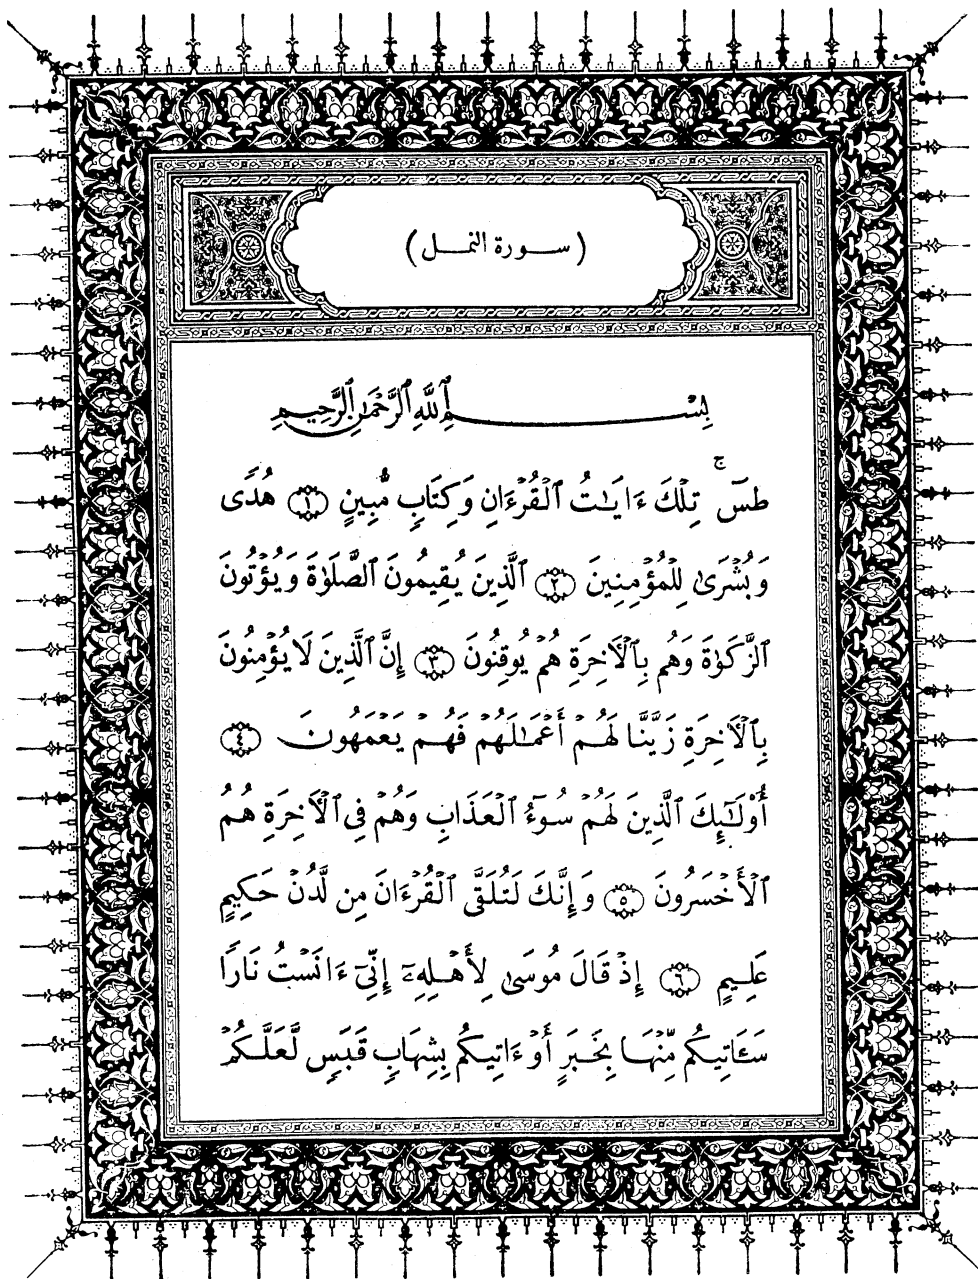 (ســورة النمــل)
بِسۡــــــــمِ ٱللَّهِ ٱلرَّحۡمَٰنِ ٱلرَّحِيمِ
طسٓۚ تِلۡكَ ءَايَٰتُ ٱلۡقُرۡءَانِ وَكِتَابٖ مُّبِينٍ ۝١ هُدٗى
وَبُشۡرَىٰ لِلۡمُؤۡمِنِينَ ۝٢ ٱلَّذِينَ يُقِيمُونَ ٱلصَّلَوٰةَ وَيُؤۡتُونَ
ٱلزَّكَوٰةَ وَهُم بِٱلۡأٓخِرَةِ هُمۡ يُوقِنُونَ ۝٣ إِنَّ ٱلَّذِينَ لَا يُؤۡمِنُونَ
بِٱلۡأٓخِرَةِ زَيَّنَّا لَهُمۡ أَعۡمَٰلَهُمۡ فَهُمۡ يَعۡمَهُونَ ۝٤
أُوْلَٰٓئِكَ ٱلَّذِينَ لَهُمۡ سُوٓءُ ٱلۡعَذَابِ وَهُمۡ فِي ٱلۡأٓخِرَةِ هُمُ
ٱلۡأَخۡسَرُونَ ۝٥ وَإِنَّكَ لَتُلَقَّى ٱلۡقُرۡءَانَ مِن لَّدُنۡ حَكِيمٍ
عَلِيمٍ ۝٦ إِذۡ قَالَ مُوسَىٰ لِأَهۡلِهِۦٓ إِنِّيٓ ءَانَسۡتُ نَارٗا
سَـَٔاتِيكُم مِّنۡهَا بِخَبَرٍ أَوۡ ءَاتِيكُم بِشِهَابٖ قَبَسٖ لَّعَلَّكُمۡ